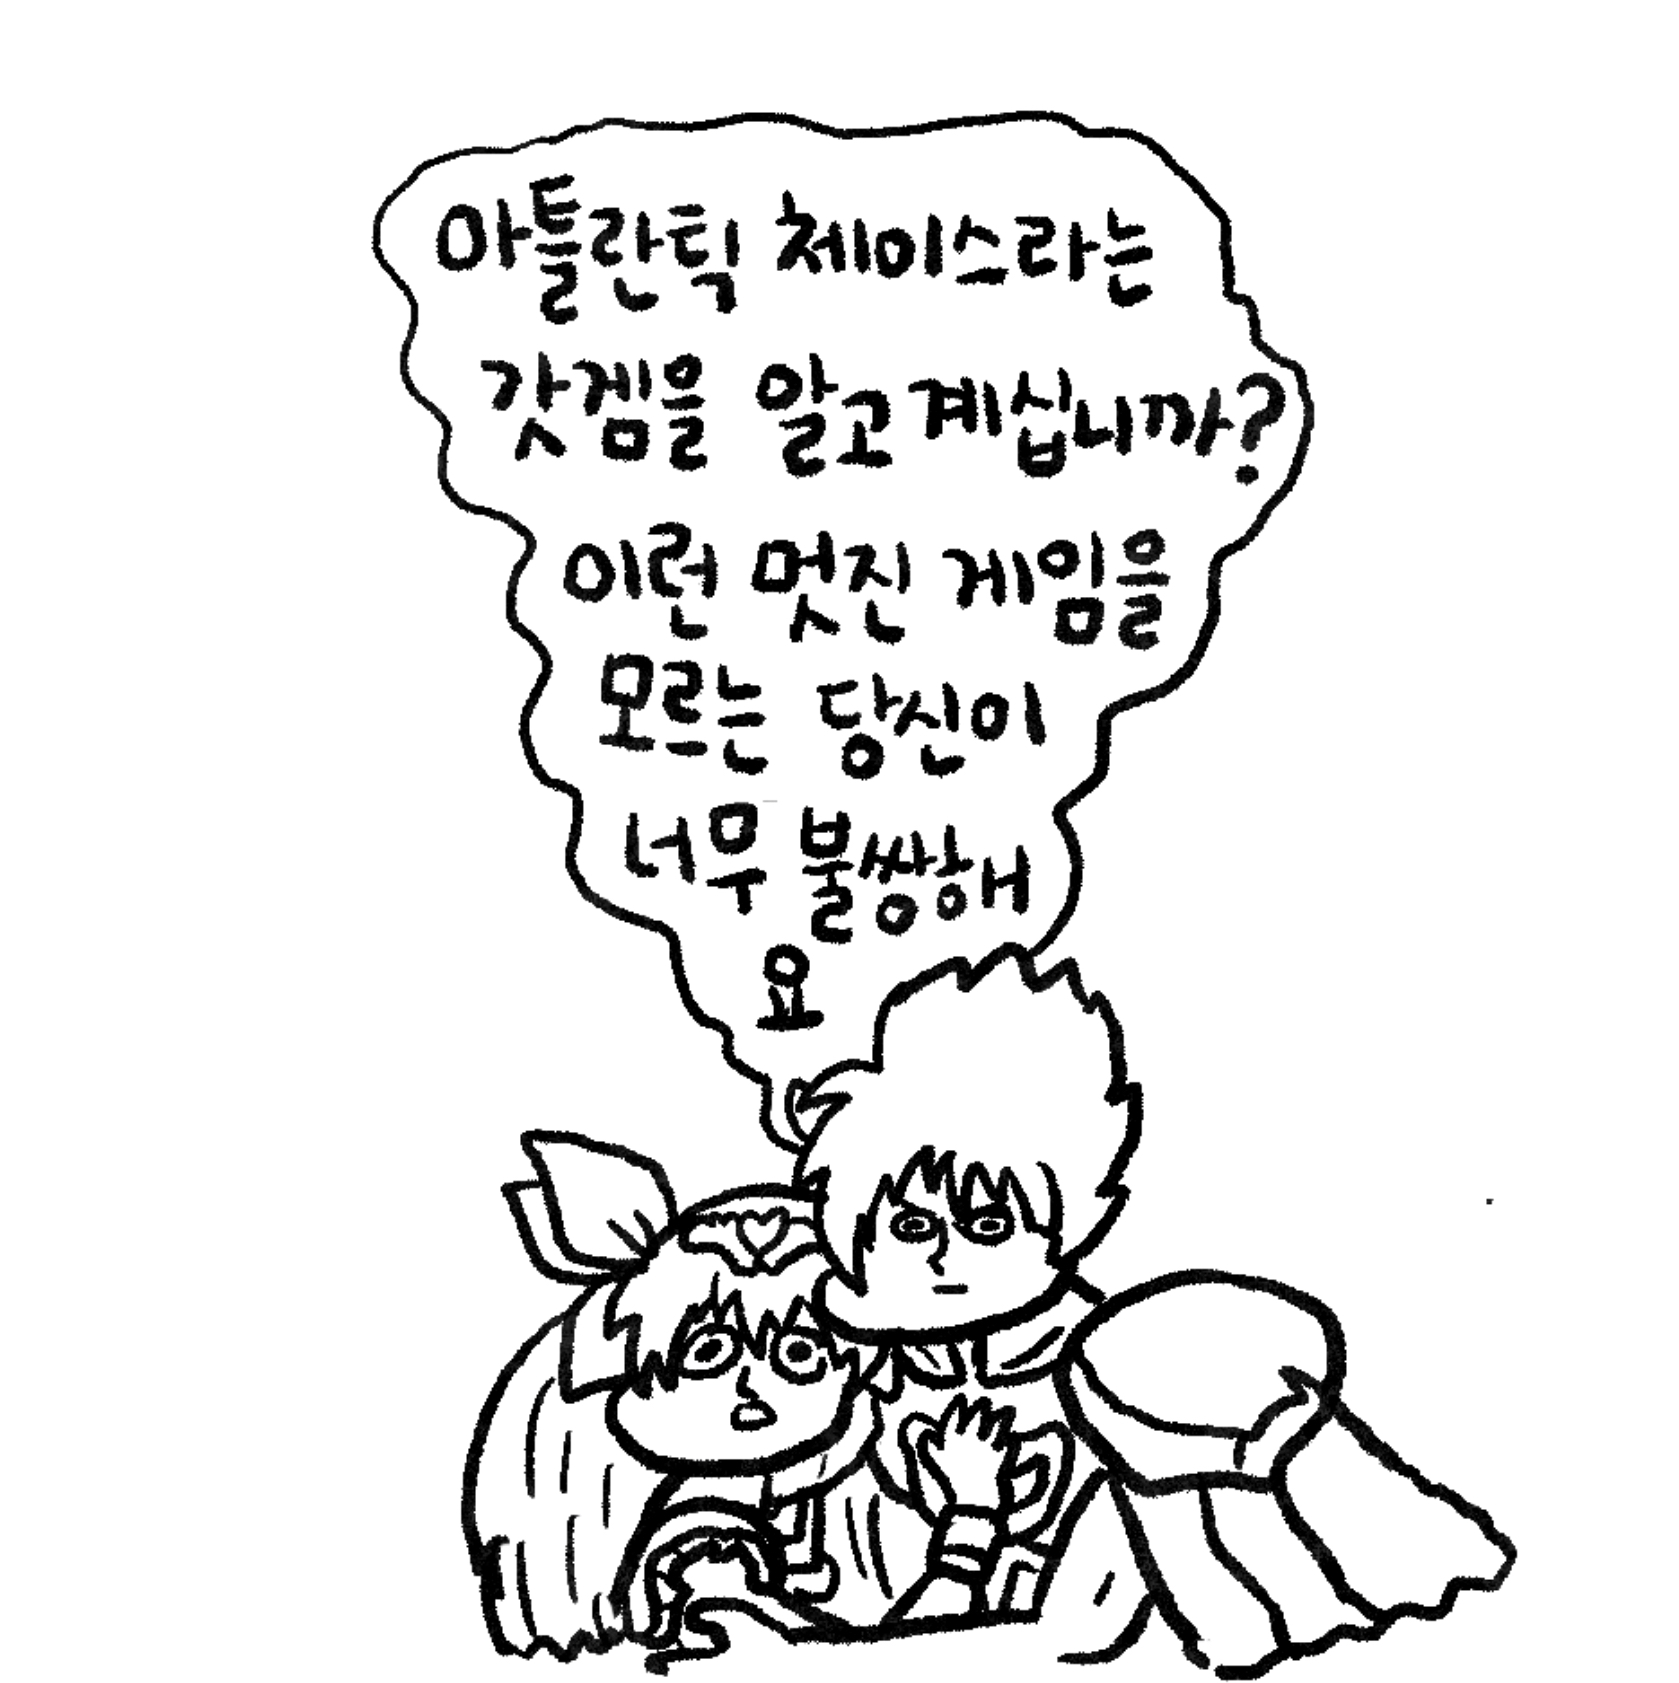 아틀란틱 체이스라는
갓겜을 알고계십니까?
이런 멋진 게임을
모르는 당신이
너무 불쌍해
요